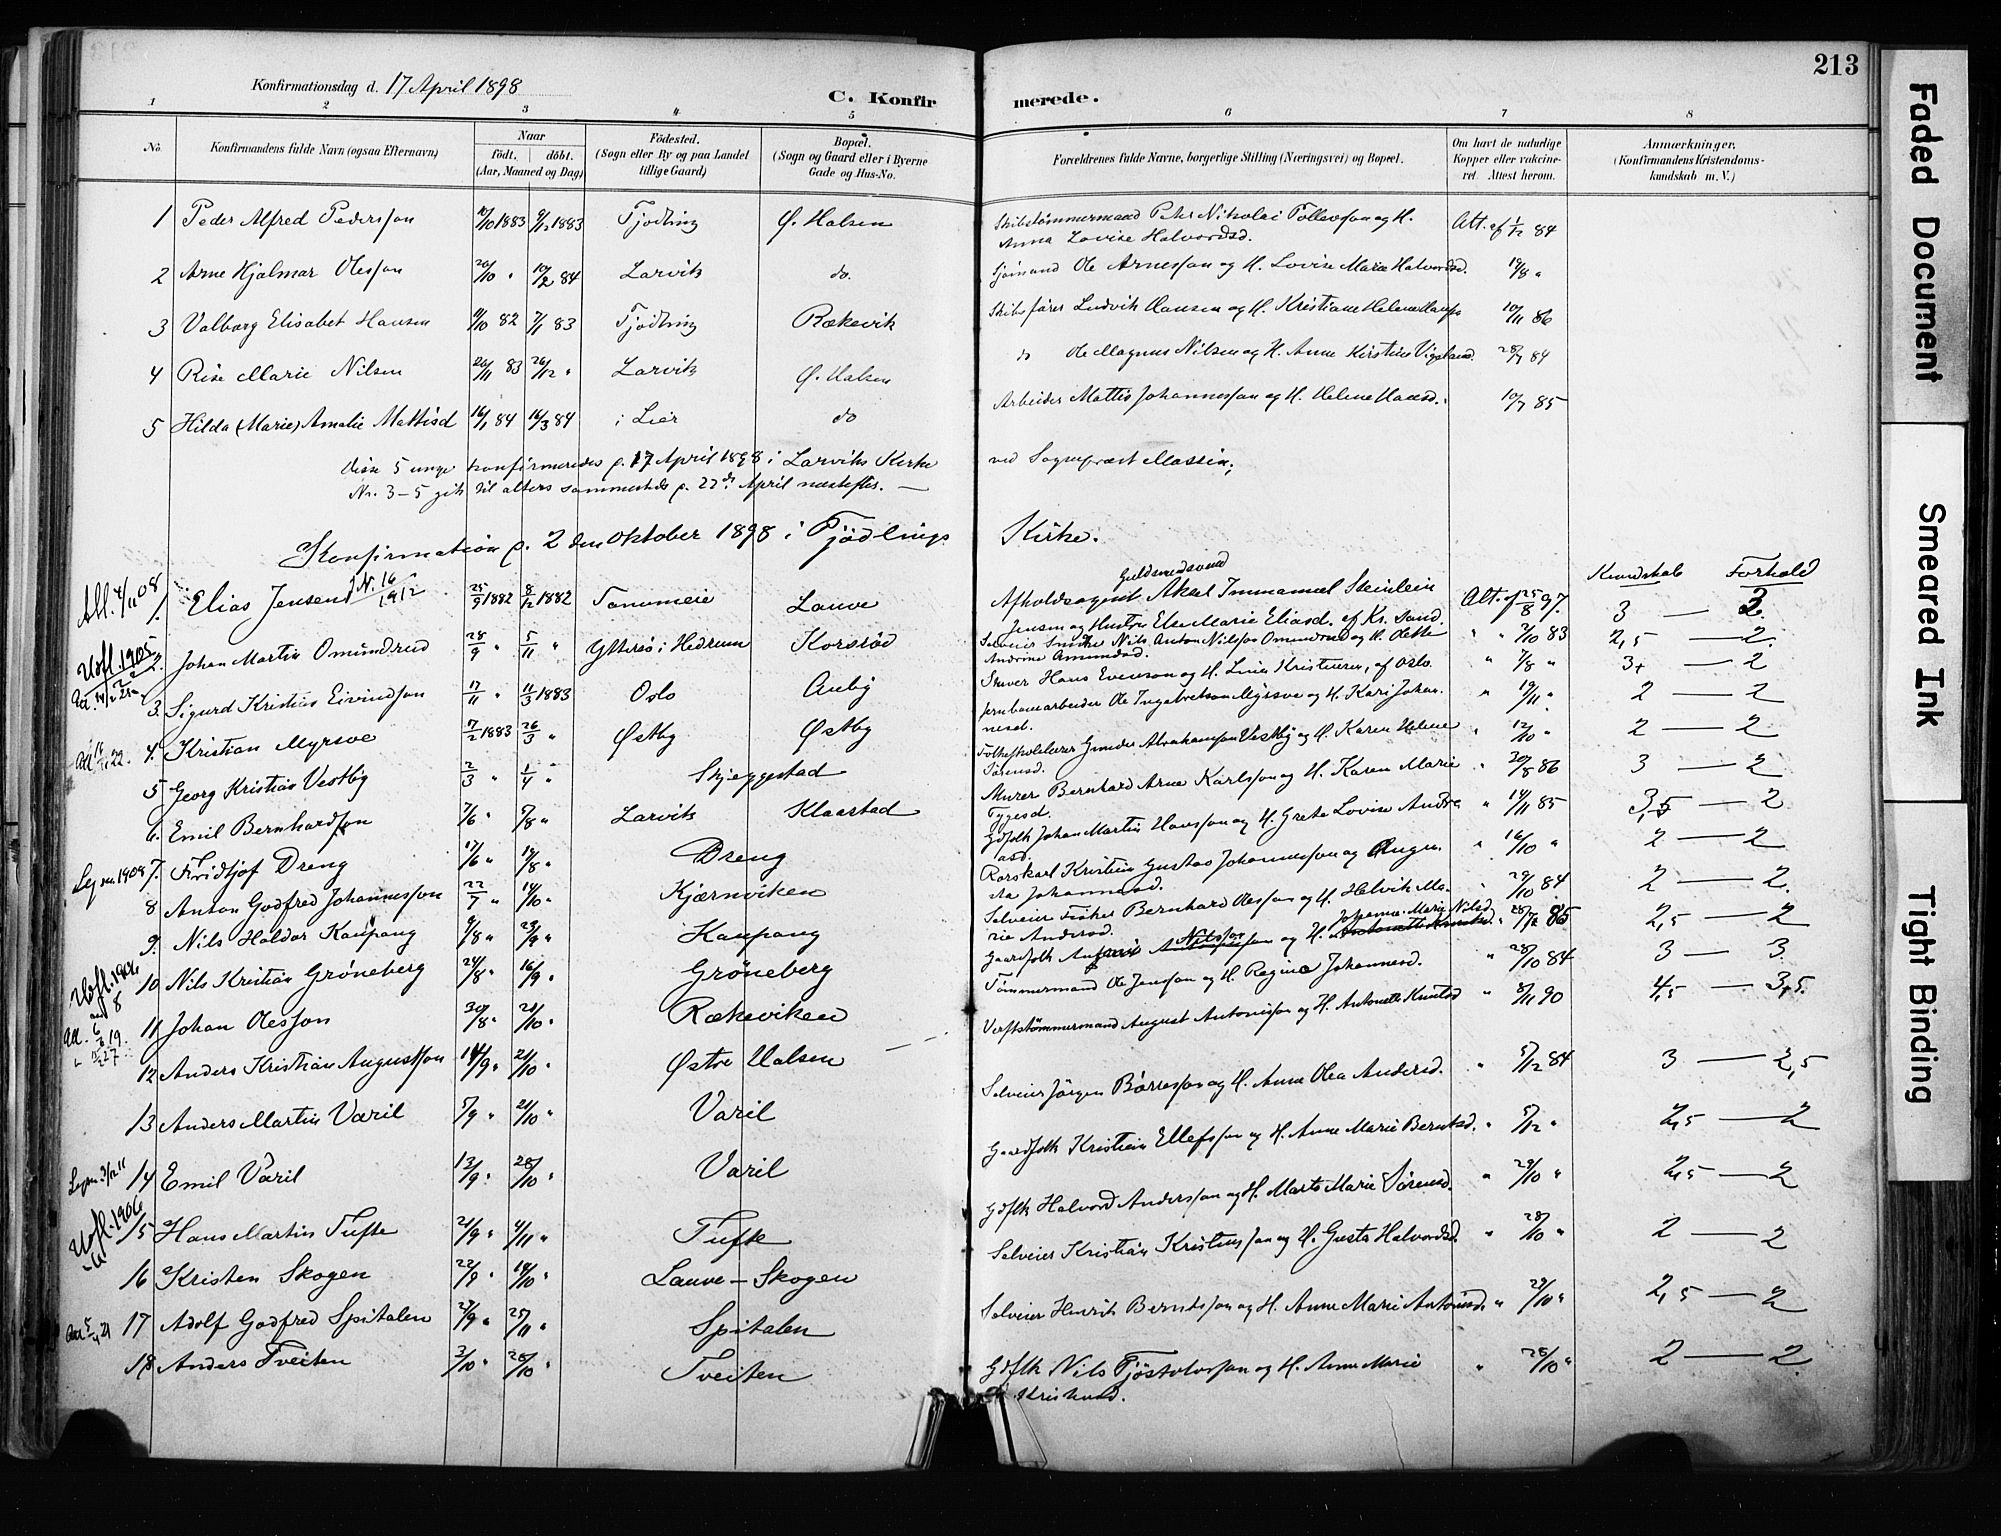 213
Konfirmationsdag d. 17 April 1898
C. Konfirmerede.
1 2 3 4 5 6 7 8
No. Konfirmandens fulde Navn (ogsaa Efternavn) Naar født. døbt. (Aar, Maaned og Dag) Födested. (Sogn eller By og paa Landet tillige Gaard) Bopæl. (Sogn og Gaard eller i Byerne Gade og Hus-No. Forældrenes fulde Navne, borgerlige Stilling (Næringsvei) og Bopæl. Om havt de naturlige Kopper eller vakcineret. Attest herom. Anmærkninger. (Konfirmandens Kristendomskundskab m. V.)
1 Peder Alfred Pedersson 10/10 1883 9/12 1883 Tjödling Ø. Halsen Skibstömmermand Peter Nikolai Tollevson og H. Att. af 1/12 84
Anna Lovise Halvordsd.
2 Arne Hjalmar Olesson 20/10 " 10/2 84 Larvik do. Sjömand Ole Arnesson og H. Lovise Marie Halvordsd. 19/8 "
3 Valborg Elisabet Hansen 9/10 82 7/1 83 Tjödling Rækevik Skibsfører Ludvik Hansen og H. Kristiane Helene 10/11 86
4 Rise Marie Nilsen 20/11 83 26/12 " Larvik Ø. Halsen do Ole Magnus Nilsen og H. Anne Kirstine 28/7 84
5 Hilda (Marie) Amalie Mattisd 16/1 84 16/3 84 i Lier do Arbeider Mattis Johannesson og H. Helene Hansd. 10/7 85
Disse 5 unge konfirmeredes p. 17 April 1898 i Larviks Kirke ved Sogneprest Massin;
Nr. 3-5 gik til alters sammesteds p. 22de April næstefter. —
Konfirmation p. 2 den Oktober 1898 i Tjödlings Kirke.
Kundskab Forhold
All. 4/11 08 1. Elias Jensen N. 16/1912 25/9 1882 8/12 1882 Tanumeie Lauve Guldsmedsvend Afholdsagent Aksel Immanuel Steinlein Att. af 25/8 97. 3 — 2.
Jensen og Hustru Else Marie Eliasd. af Kr. Sand.
Utfl. 1905 2. Johan Martin Omundrud 28/9 " 5/11 " Yttersö i Hedrum Korsröd Selveier Smeke Nils Anton Nilsson Omundrud og H. Olette " " 3/10 83 2,5 — 2.
Andrine Amundsd.
3. Sigurd Kristian Eivindson 17/11 " 11/3 1883 Oslo Auby Skiver Hans Evenson og H. Lina Kristensen, af Oslo. " 7/8 " 3+ — 2
4. Kristian Myrsve 17/2 1883 26/3 " Østby Østby Jernbanearbeider Ole Ingebretson Myrsve og H. Kari Johannesd. " 19/11 " 2 — 2
5 Georg Kristian Vestby 2/3 " 1/4 " Skjeggestad Folkeskolelærer Gunder Abrahamson Vestby og H. Karen Helene " 12/10 " 2 — 2
Sörensd.
6. Emil Bernhardson 7/6 " 5/8 " Larvik Klaastad Murer Bernhard Arne Karlsson og H. Karen Marie " 20/8 86 3 — 2
Tygesd.
Lysn. 1908 7. Fridtjof Dreng 17/6 " 19/8 " Dreng Gdfolk Johan Martin Hansson og H. Grete Lovise Andreasd. " 14/11 85 3,5 — 2
8 Anton Godfred Johannesson 22/7 " 14/10 " Kjærnviken Rorskarl Kristian Gustav Johannesson og Augusta Johannesd. " 16/10 " 2 — 2
9. Nils Haldor Kaupang 9/8 " 23/9 " Kaupang Selveier Fisker Bernhard Olesson og H. Helvik Marie Andersd. " 29/10 84 2 — 2.
Utfl. 1906 10 Nils Kristian Gröneberg 24/8 " 16/9 " Gröneberg Gaardfolk Nilsson og H. Johanne Marie Nilsd " 28/12 85 2,5 — 2
11 Johan Olesson 30/8 " 21/10 " Rækeviken Tömmermand Ole Jensson og H. Regine Johannesd. " 28/10 84 3 — 3.
12 Anders Kristian Augustsson 14/9 " 21/10 " Østre Halsen Verftstömmermand August Antonisson og H. Antonette Knutsd " 8/11 90 4,5 — 3,5.
13 Anders Martin Varil 5/9 " 21/10 " Varil Selveier Jörgen Börresson og H. Anne Olea Andersd. " 5/12 84 3 — 2,5
Lysn. 3/12 11 14 Emil Varil 13/9 " 28/10 " Varil Gaardfolk Kristian Ellefsson og H. Anne Marie Berntsd. " 5/12 " 2,5 — 2
Utfl. 1906 15 Hans Martin Tufte 21/9 " 4/11 " Tufte Gdflk Halvord Andersson og H. Marte Marie Sörensd. " 29/10 " 2,5 — 2
16 Kristen Skogen 22/9 " 14/10 " Lauve — Skogen Selveier Kristian Kristensson og H. Gusta Halvordsd. " 28/10 " 2 — 2
17 Adolf Godfred Spitalen 27/9 " 25/11 " Spitalen Selveier Henrik Berntsson og H. Anne Marie Antonisd. " 29/10 " 2,5 — 2
18 Anders Tveiten 3/10 " 28/10 " Tveiten Gdflk Nils Tjöstolvsson og H. Anne Marie " 28/10 " 2 — 2.
Faded Document
Smeared Ink
Tight Binding